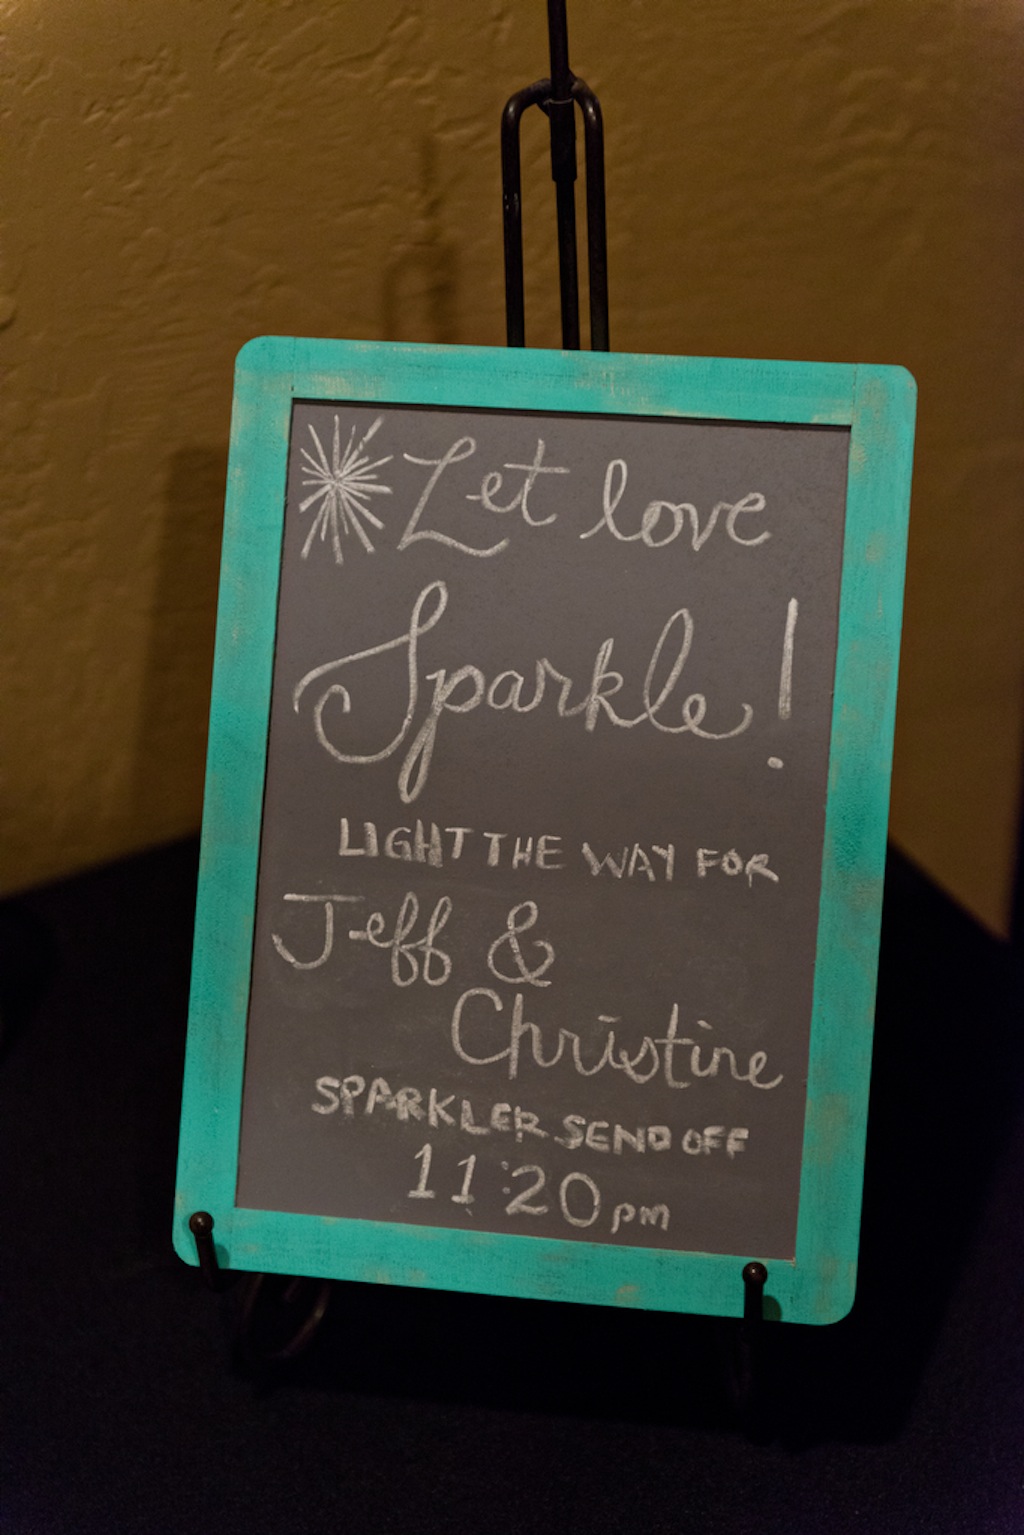 Let love
Sparkle!
LIGHT THE WAY FOR
Jeff &
Christine
SPARKLER SEND OFF
11:20 pm